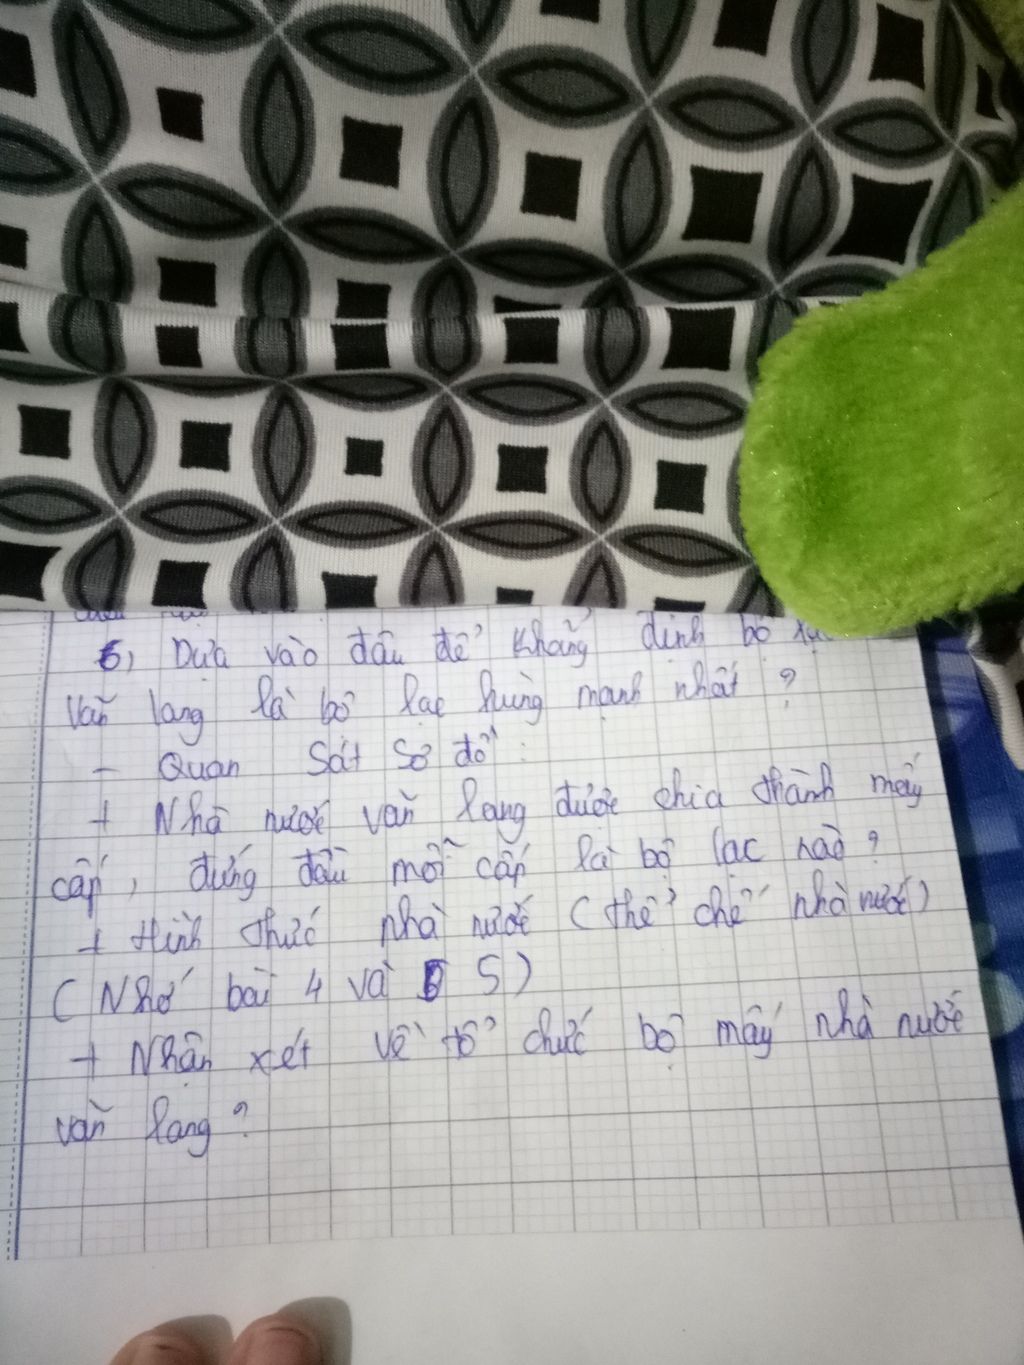 6, Dựa vào đâu để khẳng định bộ
Văn lang là bộ lạc hùng mạnh nhất ?
- Quan sát sơ đồ :
+ Nhà nước văn lang được chia thành mấy
cấp, đứng đầu mỗi cấp là bộ lạc nào ?
+ Hình thức nhà nước (thể chế nhà nước)
(Nhớ bài 4 và 5)
+ Nhận xét về tổ chức bộ mấy nhà nước
văn lang ?